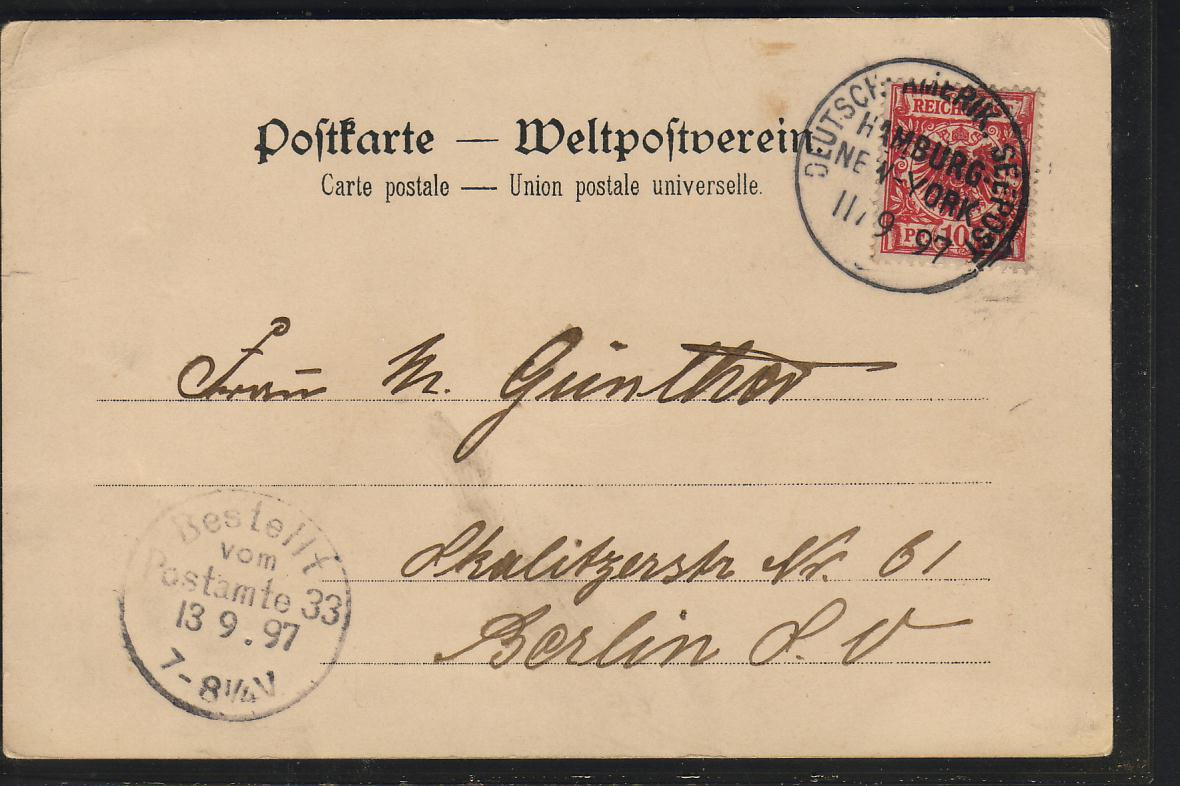 Postkarte — Weltpostverein.
Carte postale — Union postale universelle.
DEUTSCH-AMERIK. SEEPOST
HAMBURG-
NEW-YORK
11/9 97
REICHSPOST
PF 10
Frau M. Günther
Skalitzerstr Nr. 61
Berlin S. O
Bestellt
vom
Postamte 33
13 9. 97
7-8¼V.